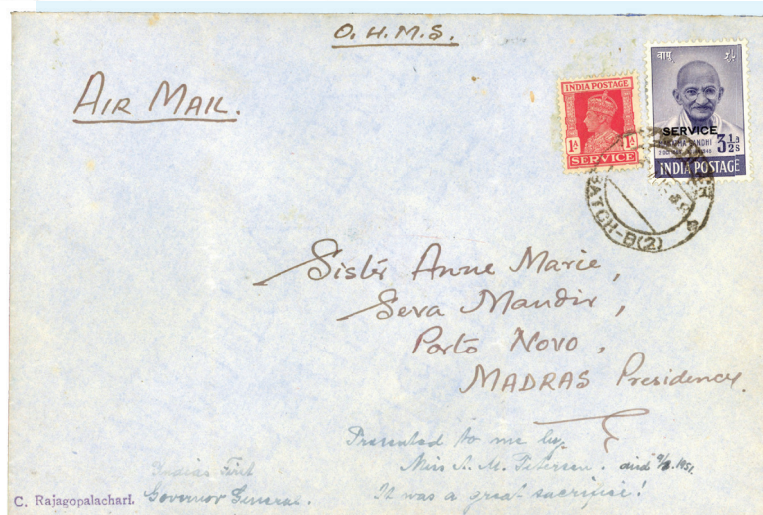 O. H. M. S.
AIR MAIL.
INDIA POSTAGE
1A 1A
SERVICE
बापू
SERVICE
MAHATMA GANDHI
3½ As
INDIA POSTAGE
BATCH-B(2)
Sister Anne Marie,
Seva Mandir,
Porto Novo,
MADRAS Presidency.
Presented to me by
Miss A. M. Petersen. died 1951.
It was a great sacrifice!
India's First
Governor General.
C. Rajagopalachari.